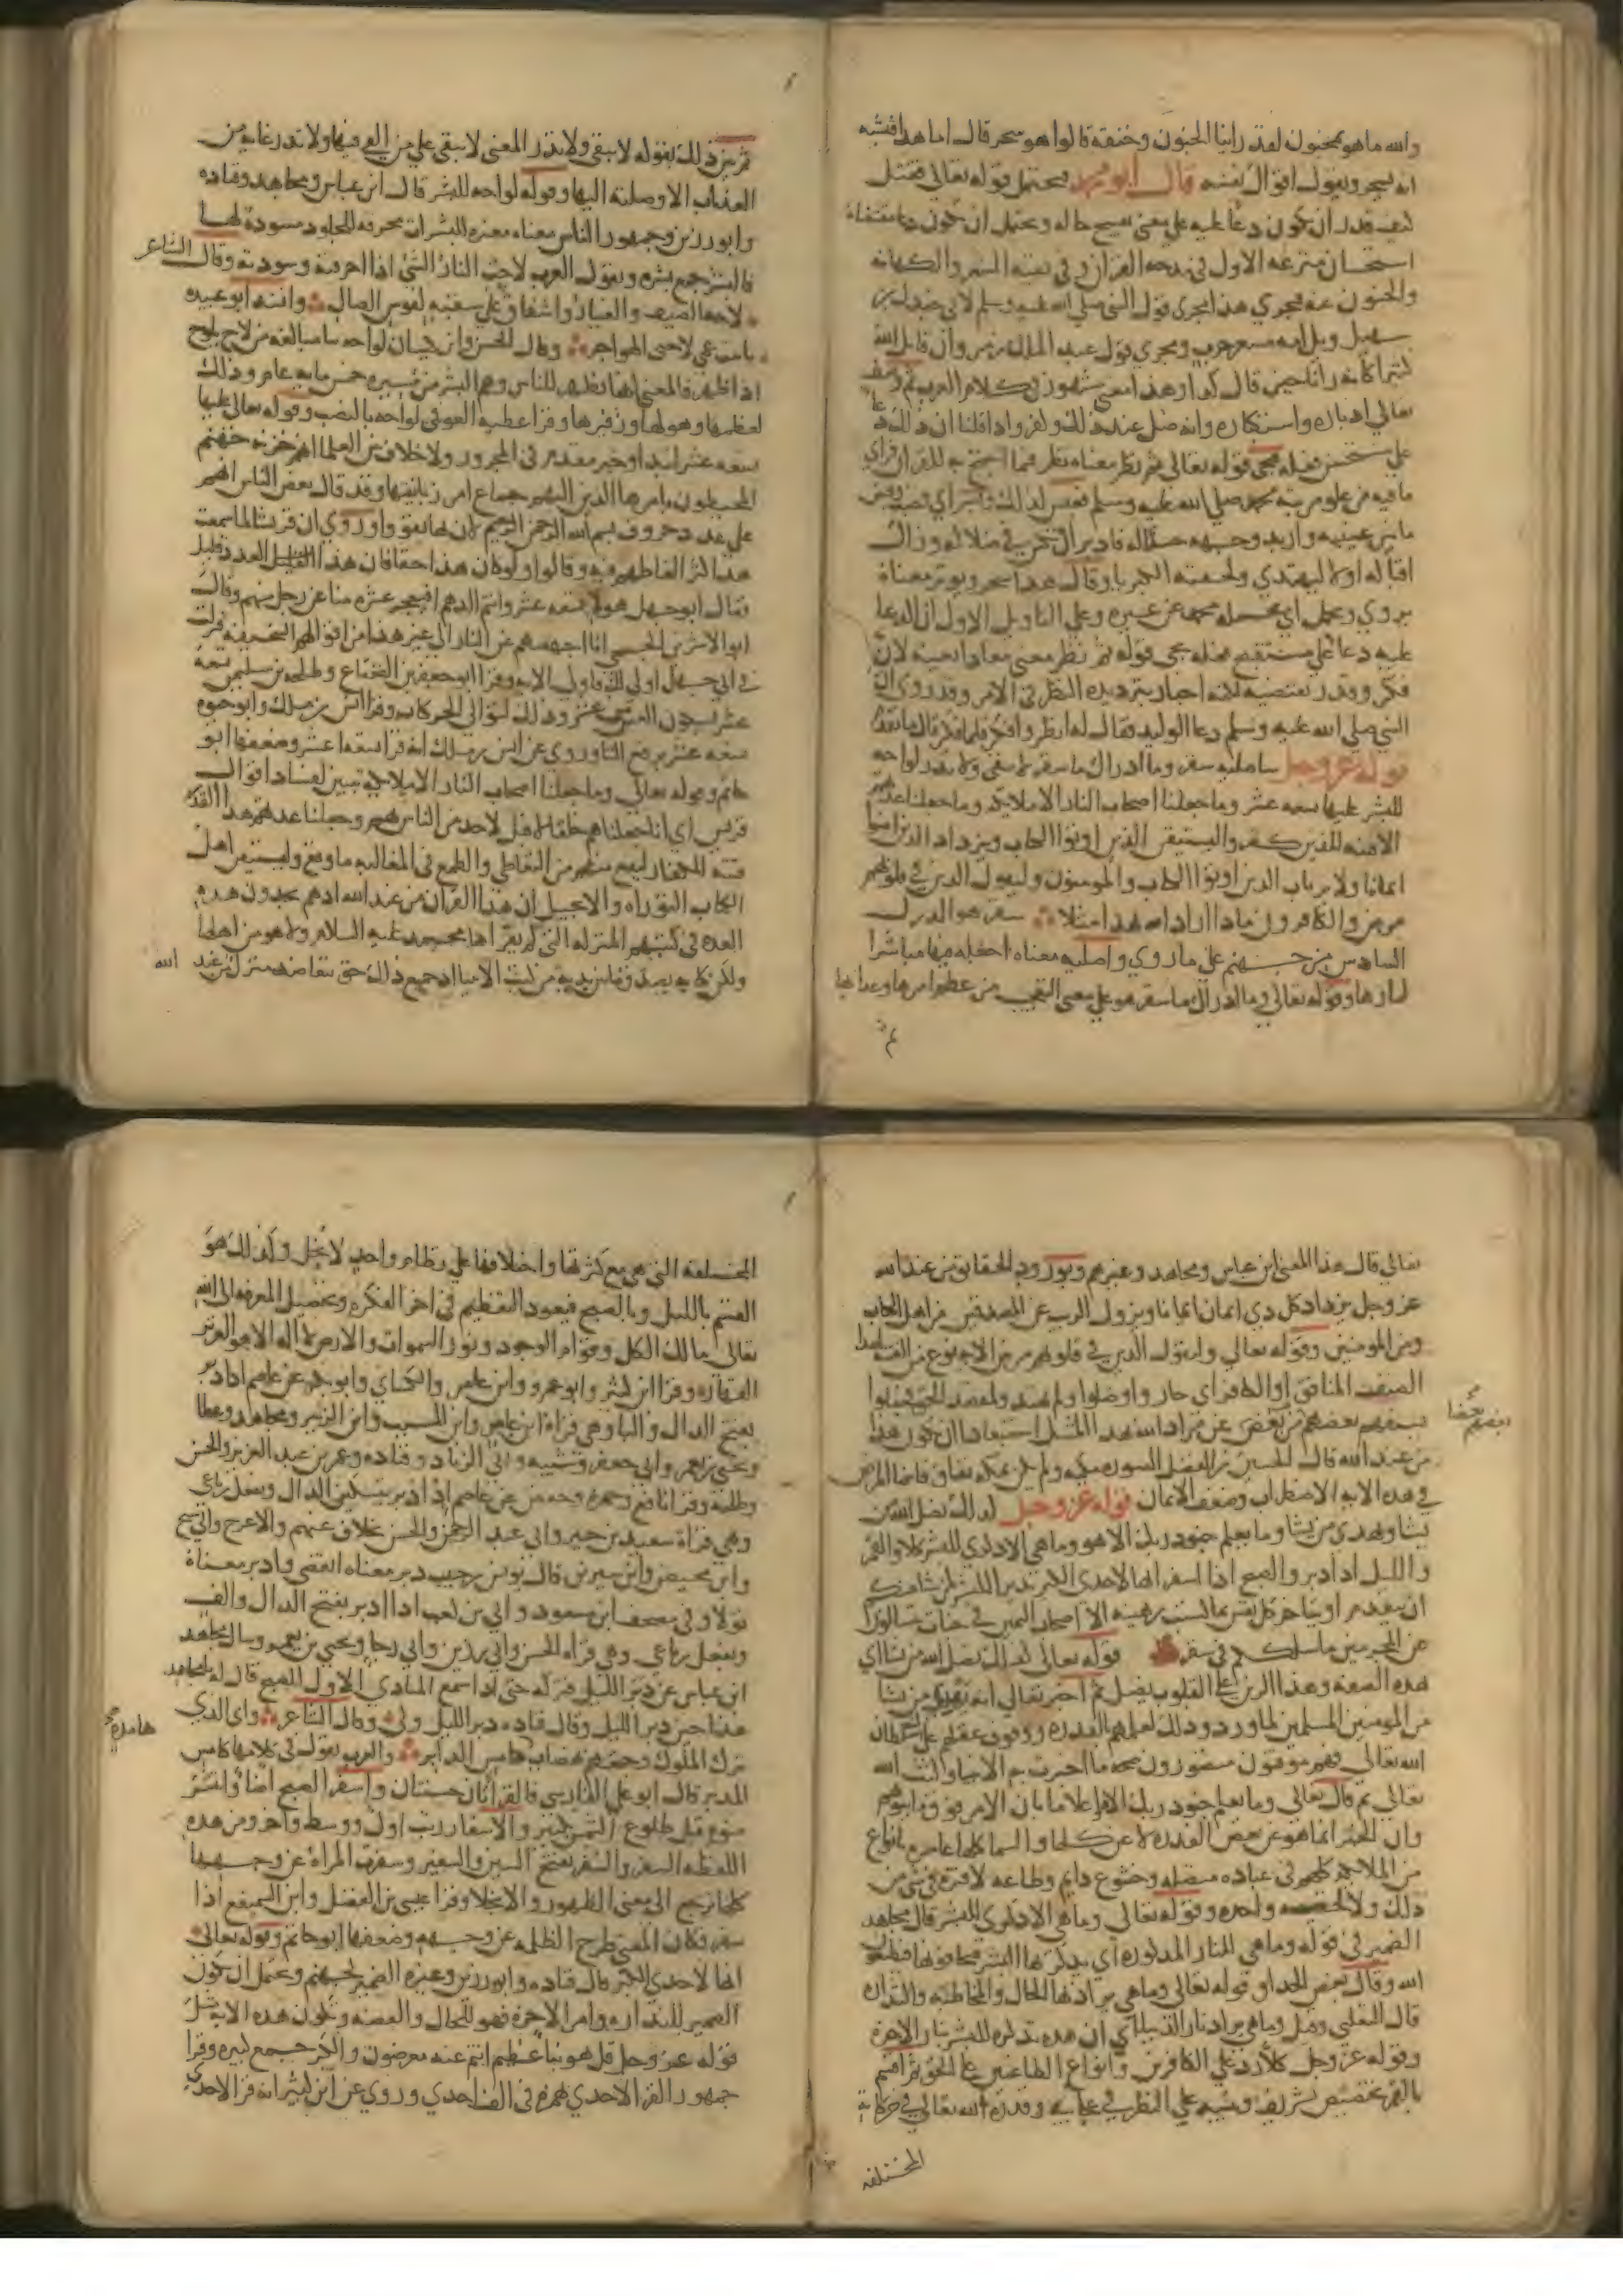 والله ما هو بمجنون لقد راينا الجنون وخنقه قالوا هو سحر قال اما هذا فيشبه
انه سحر ويقول اقوال نفسه قال ابو محمد فيحتمل قوله تعالى فقتل
كيف قدر ان يكون دعا عليه على معنى تقبيح حاله ويحتمل ان يكون دعا مقتضاه
استحسان منزعه الاول في مدحه القران وفي نفيه الشعر والكهانة
والجنون عنه فيجري هذا مجرى قول النبي صلى الله عليه وسلم لابي جندل بن
سهيل ويل امه مسعر حرب ومجرى قول عبد الملك بن مروان قاتل الله
كثيرا كانه رانا حين قال كذا وهذا معنى مشهور في كلام العرب ثم وصف
تعالى ادباره واستكباره وانه ضل عند ذلك وكفر واذا قلنا ان ذلك دعا
على مستحسن فعله فيجي قوله تعالى ثم نظر معناه نظر فيما احتج به للقران فراى
ما فيه من علو مرتبة محمد صلى الله عليه وسلم فعبس لذلك وبسر اي قبض
ما بين عينيه واربد وجهه حسدا له فادبر اي تحرف في ضلاله وزال
اقباله اولا ليهتدي ولحقته الكبريا وقال هذا سحر ويوثر معناه
يروى ويحمل اي يحمله محمد عن غيره وعلى التاويل الاول ان الدعا
عليه دعا على مستقبح فعله يجي قوله ثم نظر معنى معادا بعينه لان
فكر وقدر يقتضيه لكنه اخبار بترديده النظر في الامر وقد روي ان
النبي صلى الله عليه وسلم دعا الوليد فقال له انظر وفكر فلما فكر قال ما تقدم
قوله عز وجل ساصليه سقر وما ادراك ما سقر لا تبقي ولا تذر لواحة
للبشر عليها تسعة عشر وما جعلنا اصحاب النار الا ملايكة وما جعلنا عدتهم
الا فتنة للذين كفروا ليستيقن الذين اوتوا الكتاب ويزداد الذين امنوا
ايمانا ولا يرتاب الذين اوتوا الكتاب والمومنون وليقول الذين في قلوبهم
مرض والكافرون ماذا اراد الله بهذا مثلا سقر هو الدرك
السادس من جهنم على ما روي واصليه معناه اجعله فيها مباشرا
لنارها وقوله تعالى وما ادراك ما سقر هو على معنى التعجب من عظم امرها وعذابها
ثم
ثم بين ذلك بقوله لا تبقي ولا تذر المعنى لا تبقي على من القي فيها ولا تذر غاية من
العذاب الا وصلته اليها وقوله لواحة للبشر قال ابن عباس ومجاهد وقتادة
وابو رزين وجمهور الناس معناه مغيرة للبشرات محرقة للجلود مسودة لها
فالبشر جمع بشرة وتقول العرب لاحت النار الشي اذا احرقته وسودته وقال الشاعر
لاحه الصيف والغيار واشفاق على سقبه كقوس الضال وانشد ابو عبيدة
يا بنت عمي لاحني الهواجر وقال الحسن وابن كيسان لواحة بنا مبالغة من لاح يلوح
اذا ظهر فالمعنى انها تظهر للناس وهم البشر من مسيرة خمس ماية عام وذلك
لعظمها وهولها وزفيرها وقرا عطية العوفي لواحة بالنصب وقوله تعالى عليها
تسعة عشر ابتدا وخبر مقدم في المجرور ولا خلاف بين العلما انهم خزنة جهنم
المحيطون بامرها الذين اليهم جماع امر زبانيتها وقد قال بعض الناس انهم
على عدد حروف بسم الله الرحمن الرحيم لان بها تقووا وروي ان قريشا لما سمعت
هذا كثر الغاطهم فيه وقالوا لو كان هذا حقا فان هذا القليل العدد قليل
فقال ابو جهل هولا تسعة عشر وانتم الدهم افيعجز عشرة منا عن رجل منهم وقال
ابو الاشدين الجمحي انا اجهضهم عن النار الى غير هذا من اقوالهم السخيفة فنزلت
في ابي جهل اولى لك فاولى الاية وقرا ابو جعفر بن القعقاع وطلحة بن سليمن تسعة
عشر بسكون العين من عشر وذلك لتوالي الحركات وقرا انس بن مالك وابو حيوة
تسعة عشر برفع التا وروي عن انس بن مالك انه قرا تسعة اعشر وضعفها ابو
حاتم وقوله تعالى وما جعلنا اصحاب النار الا ملايكة تبيين لفساد اقوال
قريش اي انا جعلناهم خلقا لا قبل لاحد من الناس بهم وجعلنا عدتهم هذا القدر
فتنة للكفار ليقع منهم من التعاطي والطمع في المغالبة ما وقع وليستيقن اهل
الكتاب التوراة والانجيل ان هذا القران من عند الله اذ هم يجدون هذه
العدة في كتبهم المنزلة التي لم يقراها محمد عليه السلام ولا هو من اهلها
ولكن كتابه يصدق ما بين يديه من كتب الانبيا اذ جميع ذلك حق يتعاضد منزل من عند الله
تعالى قال هذا المعنى ابن عباس ومجاهد وغيرهم وبورود الحقايق من عند الله
عز وجل يزداد كل ذي ايمان ايمانا ويزول الريب عن المصدقين من اهل الكتاب
ومن المومنين وقوله تعالى وليقول الذين في قلوبهم مرض الاية نوع من الفتنة لهذا
الصنف المنافق او الكافر اي حاروا وضلوا ولم يهتدوا لقصد الحق فجعلوا
يستفهم بعضهم من بعض عن مراد الله بهذا المثل استبعادا ان يكون هذا
بعضهم بعضا
من عند الله قال الحسين بن الفضل السورة مكية ولم يكن بمكة نفاق فانما المرض
في هذه الاية الاضطراب وضعف الايمان قوله عز وجل كذلك يضل الله من
يشا ويهدي من يشا وما يعلم جنود ربك الا هو وما هي الا ذكرى للبشر كلا والقمر
والليل اذ ادبر والصبح اذا اسفر انها لاحدى الكبر نذيرا للبشر لمن شا منكم
ان يتقدم او يتاخر كل نفس بما كسبت رهينة الا اصحاب اليمين في جنات يتسالون
عن المجرمين ما سلككم في سقر قوله تعالى كذلك يضل الله من يشا اي
هذه الصفة وهذا الرين على القلوب يضل ثم اخبر تعالى انه يهدي من يشا
من المومنين المسلمين لما ورد وذلك لعلمهم بالقدرة ووقوف عقلهم على سلطان
الله تعالى فهم موقنون متصورون صحة ما اخبرت به الانبيا وكتب الله
تعالى ثم قال تعالى وما يعلم جنود ربك الا هو اعلاما بان الامر فوق ما يتوهم
وان الخبر انما هو عن بعض القدرة لا عن كلها والسما كلها عامرة بانواع
من الملايكة كلهم في عبادة متصلة وخشوع دايم وطاعة لا فترة في شي من
ذلك ولا لحظة واحدة وقوله تعالى وما هي الا ذكرى للبشر قال مجاهد
الضمير في قوله وما هي للنار المذكورة اي يذكر بها البشر فيخافونها فيطيعون
الله وقال بعض الحذاق قوله تعالى وما هي يراد بها الحال والمخاطبة والنذارة
قال الثعلبي وقيل وما هي يراد نار الدنيا اي ان هذه تذكرة للبشر بنار الاخرة
وقوله عز وجل كلا رد على الكافرين وانواع الطاغين على الحق ثم اقسم
بالقمر تخصيص تشريف وتنبيه على النظر في عجايبه وقدرة الله تعالى في حركاته
المختلفة
المختلفة التي هي مع كثرتها واختلافها على نظام واحد لا يختل وكذلك هو
القسم بالليل وبالصبح فيعود التعظيم في اخر الفكرة وتحصيل المعرفة الى الله
تعالى مالك الكل وقوام الوجود ونور السموات والارض لا اله الا هو العزيز
القهار وقرا ابن كثير وابو عمرو وابن عامر والكساي وابو بكر عن عاصم اذا دبر
بفتح الدال والبا وهي قراة ابن عباس وابن المسيب وابن الزبير ومجاهد وعطا
ويحيى بن يعمر وابي جعفر وشيبة وابي الزناد وقتادة وعمر بن عبد العزيز والحسن
وطلحة وقرا نافع وحمزة وحفص عن عاصم اذ ادبر بتسكين الدال وبفعل رباعي
وهي قراة سعيد بن جبير وابي عبد الرحمن والحسن بخلاف عنهم والاعرج وابي شيخ
وابن محيصن وابن سيرين قال يونس بن حبيب دبر معناه انقضى وادبر معناه
تولى وفي مصحف ابن مسعود وابي بن كعب اذا ادبر بفتح الدال والف
وبفعل رباعي وهي قراة الحسن وابي رزين وابي رجا ويحيى بن يعمر وسال مجاهد
ابن عباس عن دبر الليل فتركه حتى اذا سمع المنادي الاول للصبح قال له يا مجاهد
هذا حين دبر الليل وقال قتادة دبر الليل ولى وقال الشاعر وابي الذي
ترك الملوك وجمعهم بصهاب هامدة كامس الدابر والعرب تقول في كلامها كامس
هامدة
المدبر قال ابو علي الفارسي فالقراتان حسنتان واسفر الصبح اضا وانتشر
ضوءه قبل طلوع الشمس بكثير والاسفار رتب اول ووسط واخر ومن هذه
اللفظة السفر والسفر بفتح السين والسفير وسفرت المراة عن وجهها
كلها ترجع الى معنى الظهور والانجلا وقرا عيسى بن الفضل وابن السميفع اذا
سفر فكان المعنى طرح الظلمة عن وجهه وضعفها ابو حاتم وقوله تعالى
انها لاحدى الكبر قال قتادة وابو رزين وغيره الضمير لجهنم ويحتمل ان يكون
الضمير للنذارة وامر الاخرة فهو للحال والقصة وتكون هذه الاية مثل
قوله عز وجل قل هو نبا عظيم انتم عنه معرضون والكبر جمع كبيرة وقرا
جمهور القرا لاحدى بهمزة في الف احدى وروي عن ابن كثير انه قرا لاحدى